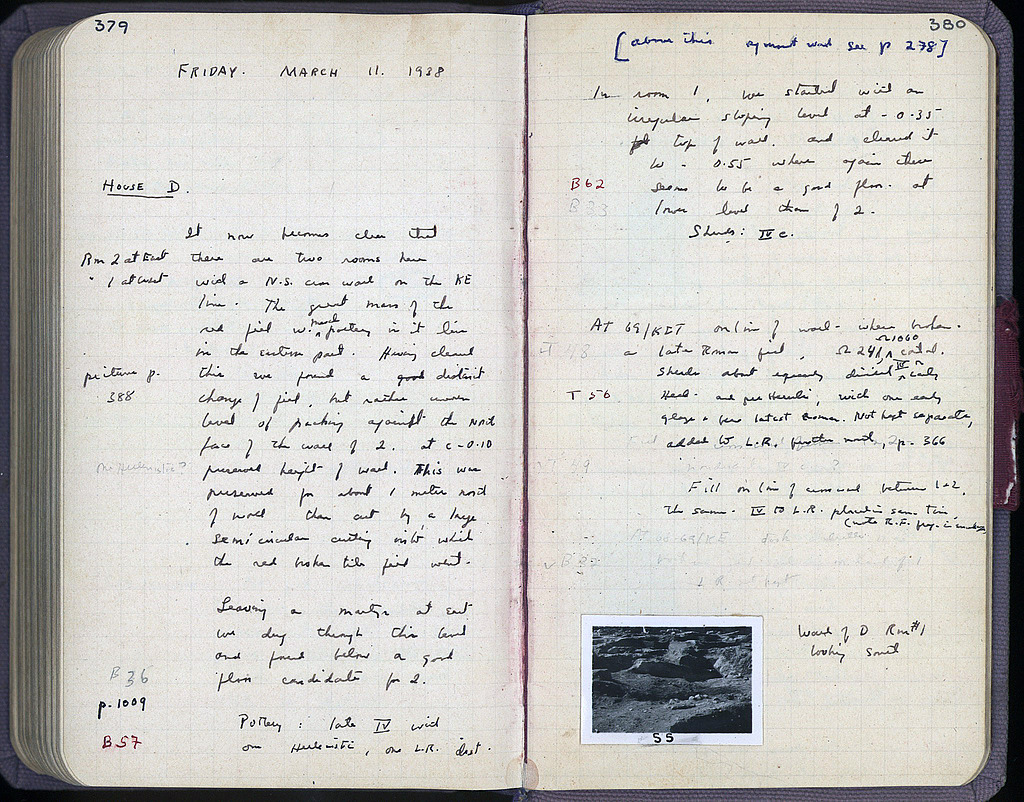 379
FRIDAY. MARCH 11. 1938
HOUSE D.
It now becomes clear that
Rm 2 at East there are two rooms here
" 1 at West with a N.S. cross wall on the KE
line. The great mass of the
red fill w. much pottery in it lies
in the eastern part. Having cleared
picture p. this we found a good distinct
388 change of fill, but rather uneven
level of packing against the north
face of the wall of 2. at c - 0.10
preserved height of wall. This was
preserved for about 1 meter north
of wall then cut by a large
semi circular cutting into which
the red broken tile fill went.
Leaving a martyr at East
we dug through this level
and found below a good
B 36 floor candidate for 2.
p. 1009
Pottery: late IV with
B 57 one Hellenistic, one L.R. dist.
380
[above this against wall see p 278]
In room 1, we started with an
irregular sloping level at - 0.35
top of wall. and cleared it
to - 0.55 where again there
B 62 seems to be a good floor. at
B 33 lower level than of 2.
Sherds: IV c.
At 69/KΣT on line of wall - where broken.
Ω 1060
T 48 a late Roman fill, Ω 241, coated.
Sherds about equally divided IV early
T 56 Hell. and pre Herulian, with one early
glaze & few latest Roman. Not kept separate,
added to L.R. p. 366
49
Fill on line of cross wall between 1 + 2.
the same. IV to L.R. plus
69/KE
B 37
Wall of D Rm #1
looking South
55